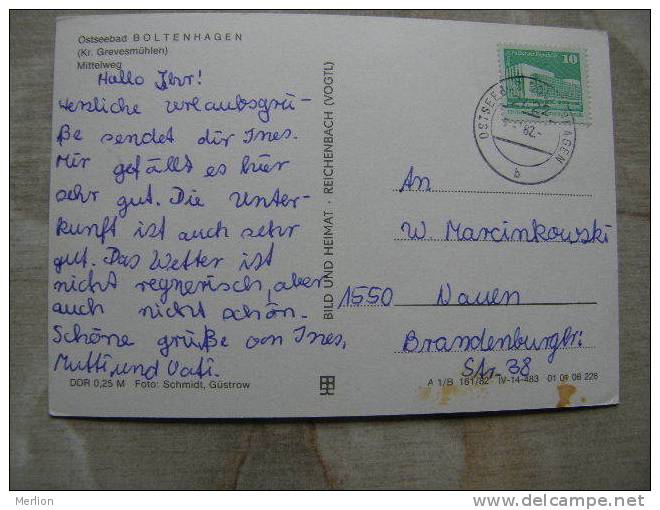 Ostseebad BOLTENHAGEN
(Kr. Grevesmühlen)
Mittelweg
Hallo
Herzliche urlaubsgrü-
ße sendet dir Ines.
Mir gefällt es hier
sehr gut. Die Unter-
kunft ist auch sehr
gut. Das Wetter ist
nicht regnerisch, aber
auch nicht schön.
Schöne grüße von Ines,
Mutti, und Vati.
DDR 0,25 M Foto: Schmidt, Güstrow
BILD UND HEIMAT · REICHENBACH (VOGTL)
10
OSTSEEBAD BOLTENHAGEN
82.-
b
An
W. Marcinkowski
1550 Nauen
Brandenburger
Str. 38
A 1/B 161/82 IV-14-483 01 09 06 228
Merlion
http://www.delcampe.net